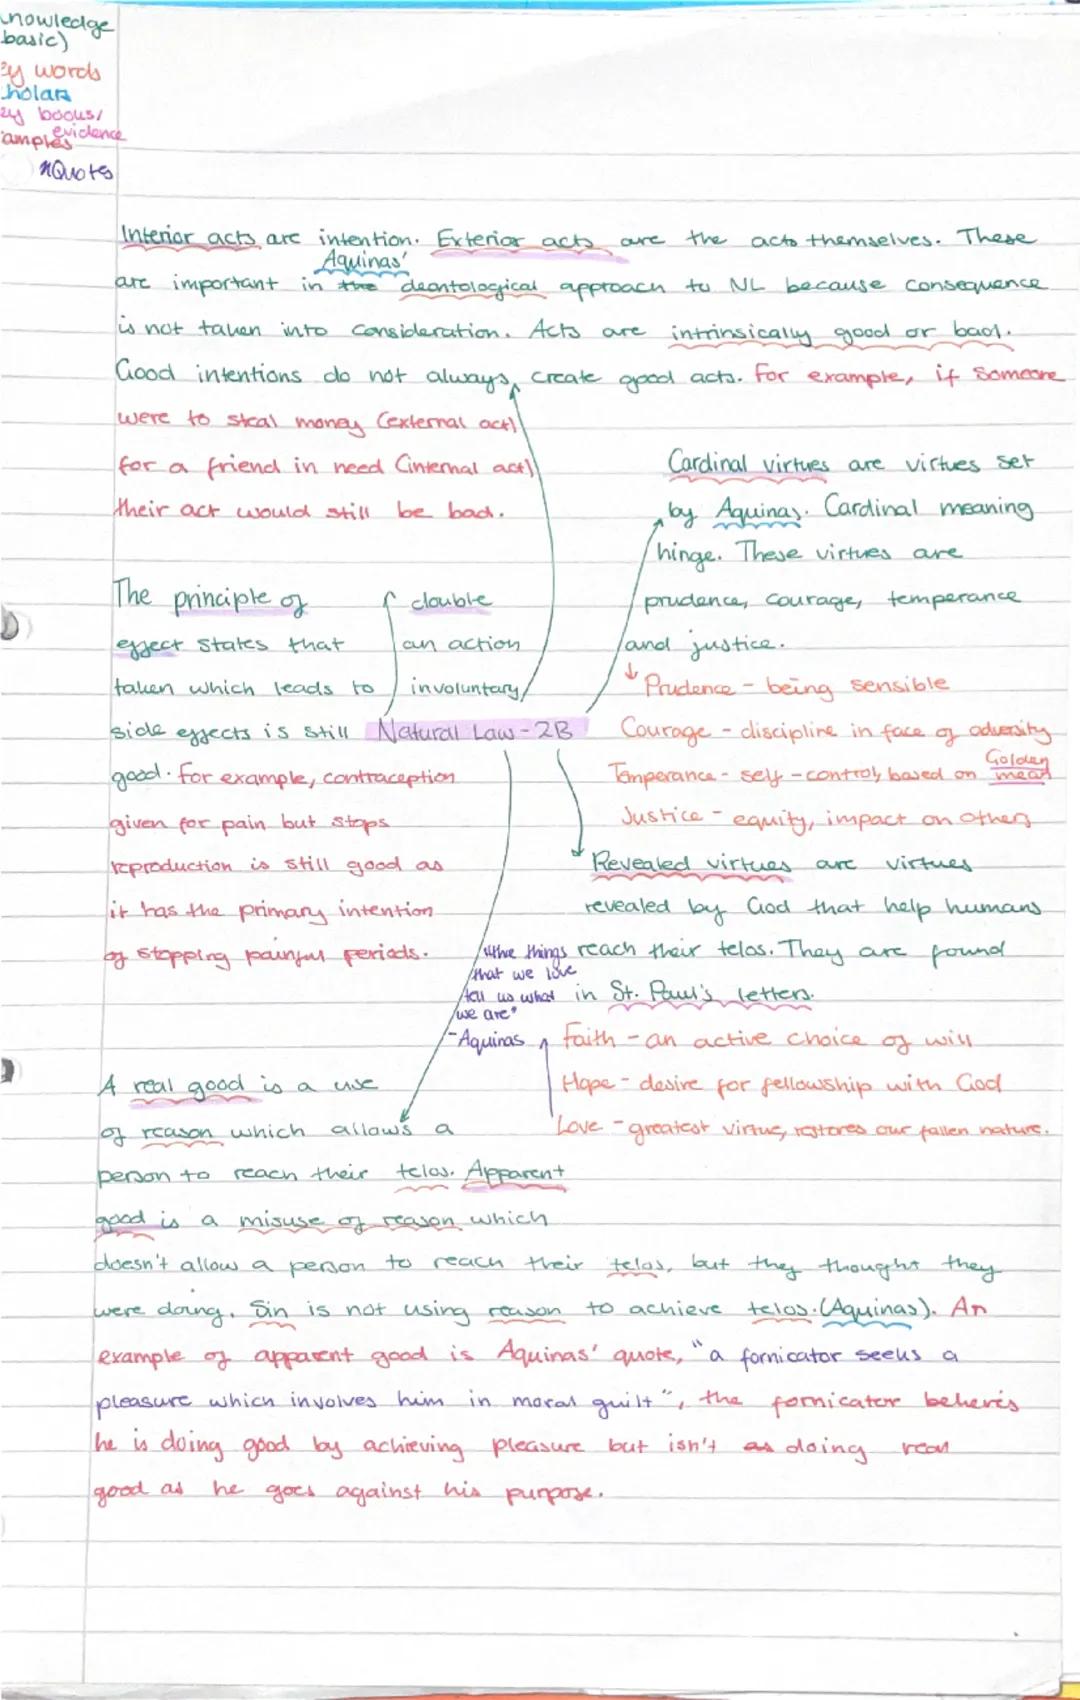 nowledge
basic)
ey words
holars
ey books/
evidence
amples
Quotes
Interior acts are intention. Exterior acts are the acts themselves. These
Aquinas'
are important in the deontological approach to NL because consequence
is not taken into consideration. Acts are intrinsically good or bad.
Good intentions do not always create good acts. For example, if someone
were to steal money (external act)
for a friend in need (internal act)
their act would still be bad.
Cardinal virtues are virtues set
by Aquinas. Cardinal meaning
hinge. These virtues are
prudence, courage, temperance
and justice.
Prudence - being sensible
Courage - discipline in face of adversity
Temperance - self-control, based on Golden
mean
Justice - equity, impact on others
The principle of double
effect states that an action
taken which leads to involuntary
side effects is still
good. For example, contraception
given for pain but stops
reproduction is still good as
it has the primary intention
of stopping painful periods.
Natural Law - 2B
Revealed virtues are virtues
revealed by God that help humans
reach their telos. They are found
in St. Paul's letters.
"the things
that we love
tell us what
we are"
- Aquinas
Faith - an active choice of will
Hope - desire for fellowship with God
Love - greatest virtue, restores our fallen nature.
A real good is a use
of reason which allows a
person to reach their telos. Apparent
good is a misuse of reason which
doesn't allow a person to reach their telos, but they thought they
were doing. Sin is not using reason to achieve telos. (Aquinas). An
example of apparent good is Aquinas' quote, "a fornicator seeks a
pleasure which involves him in moral guilt", the fornicator believes
he is doing good by achieving pleasure but isn't as doing real
good as he goes against his purpose.